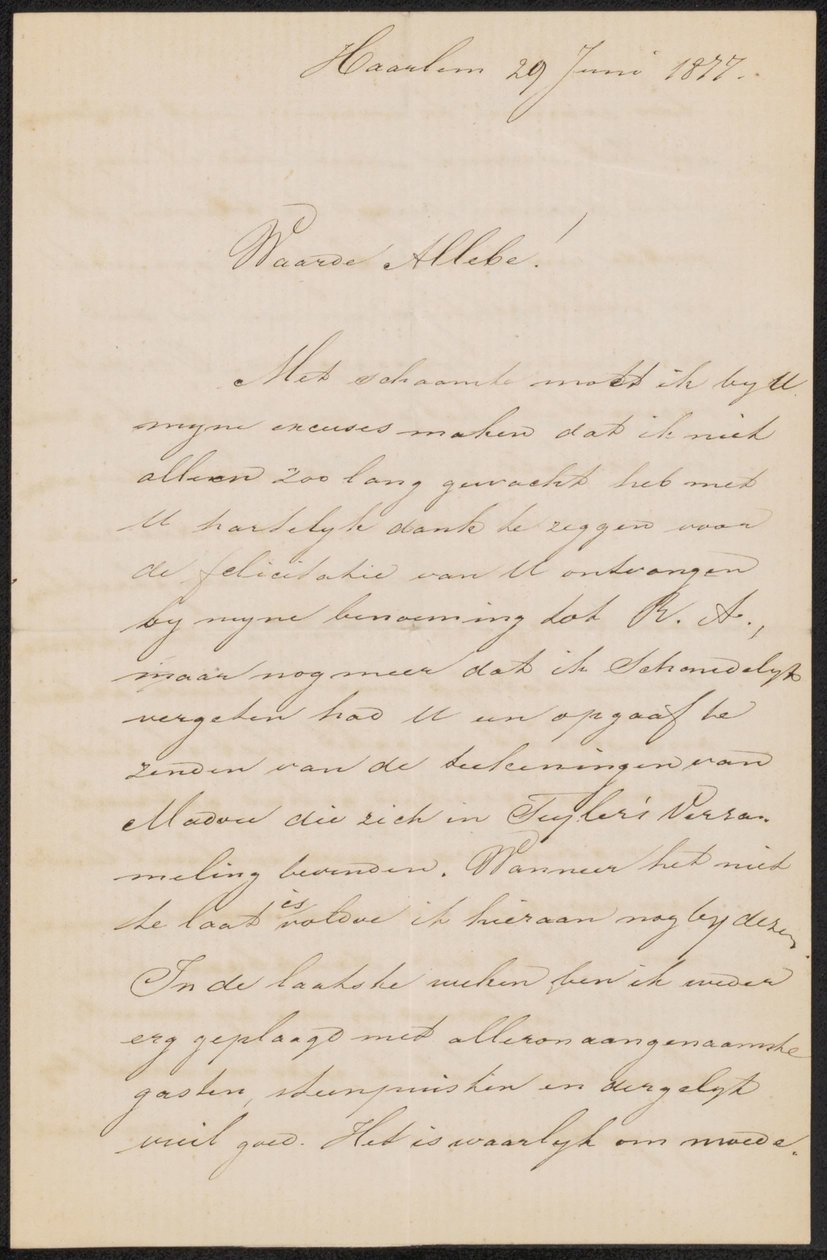 Haarlem 29 Juni 1877.
Waarde Allebe!
Met schaamte moet ik by U
myne excuses maken dat ik niet
alleen zoo lang gewacht heb met
U hartelyk dank te zeggen voor
de felicitatie van U ontvangen
by myne benoeming tot R. A.,
maar nog meer dat ik schandelyk
vergeten had U een opgaaf te
zenden van de teekeningen van
Madou die zich in Teyler's Verza-
meling bevinden. Wanneer het niet
te laat is voldoe ik hieraan nog by deze.
In de laatste weken ben ik weder
erg geplaagd met alleronaangenaamste
gasten, steenpuisten en dergelyk
vuil goed. Het is waarlyk om moede-